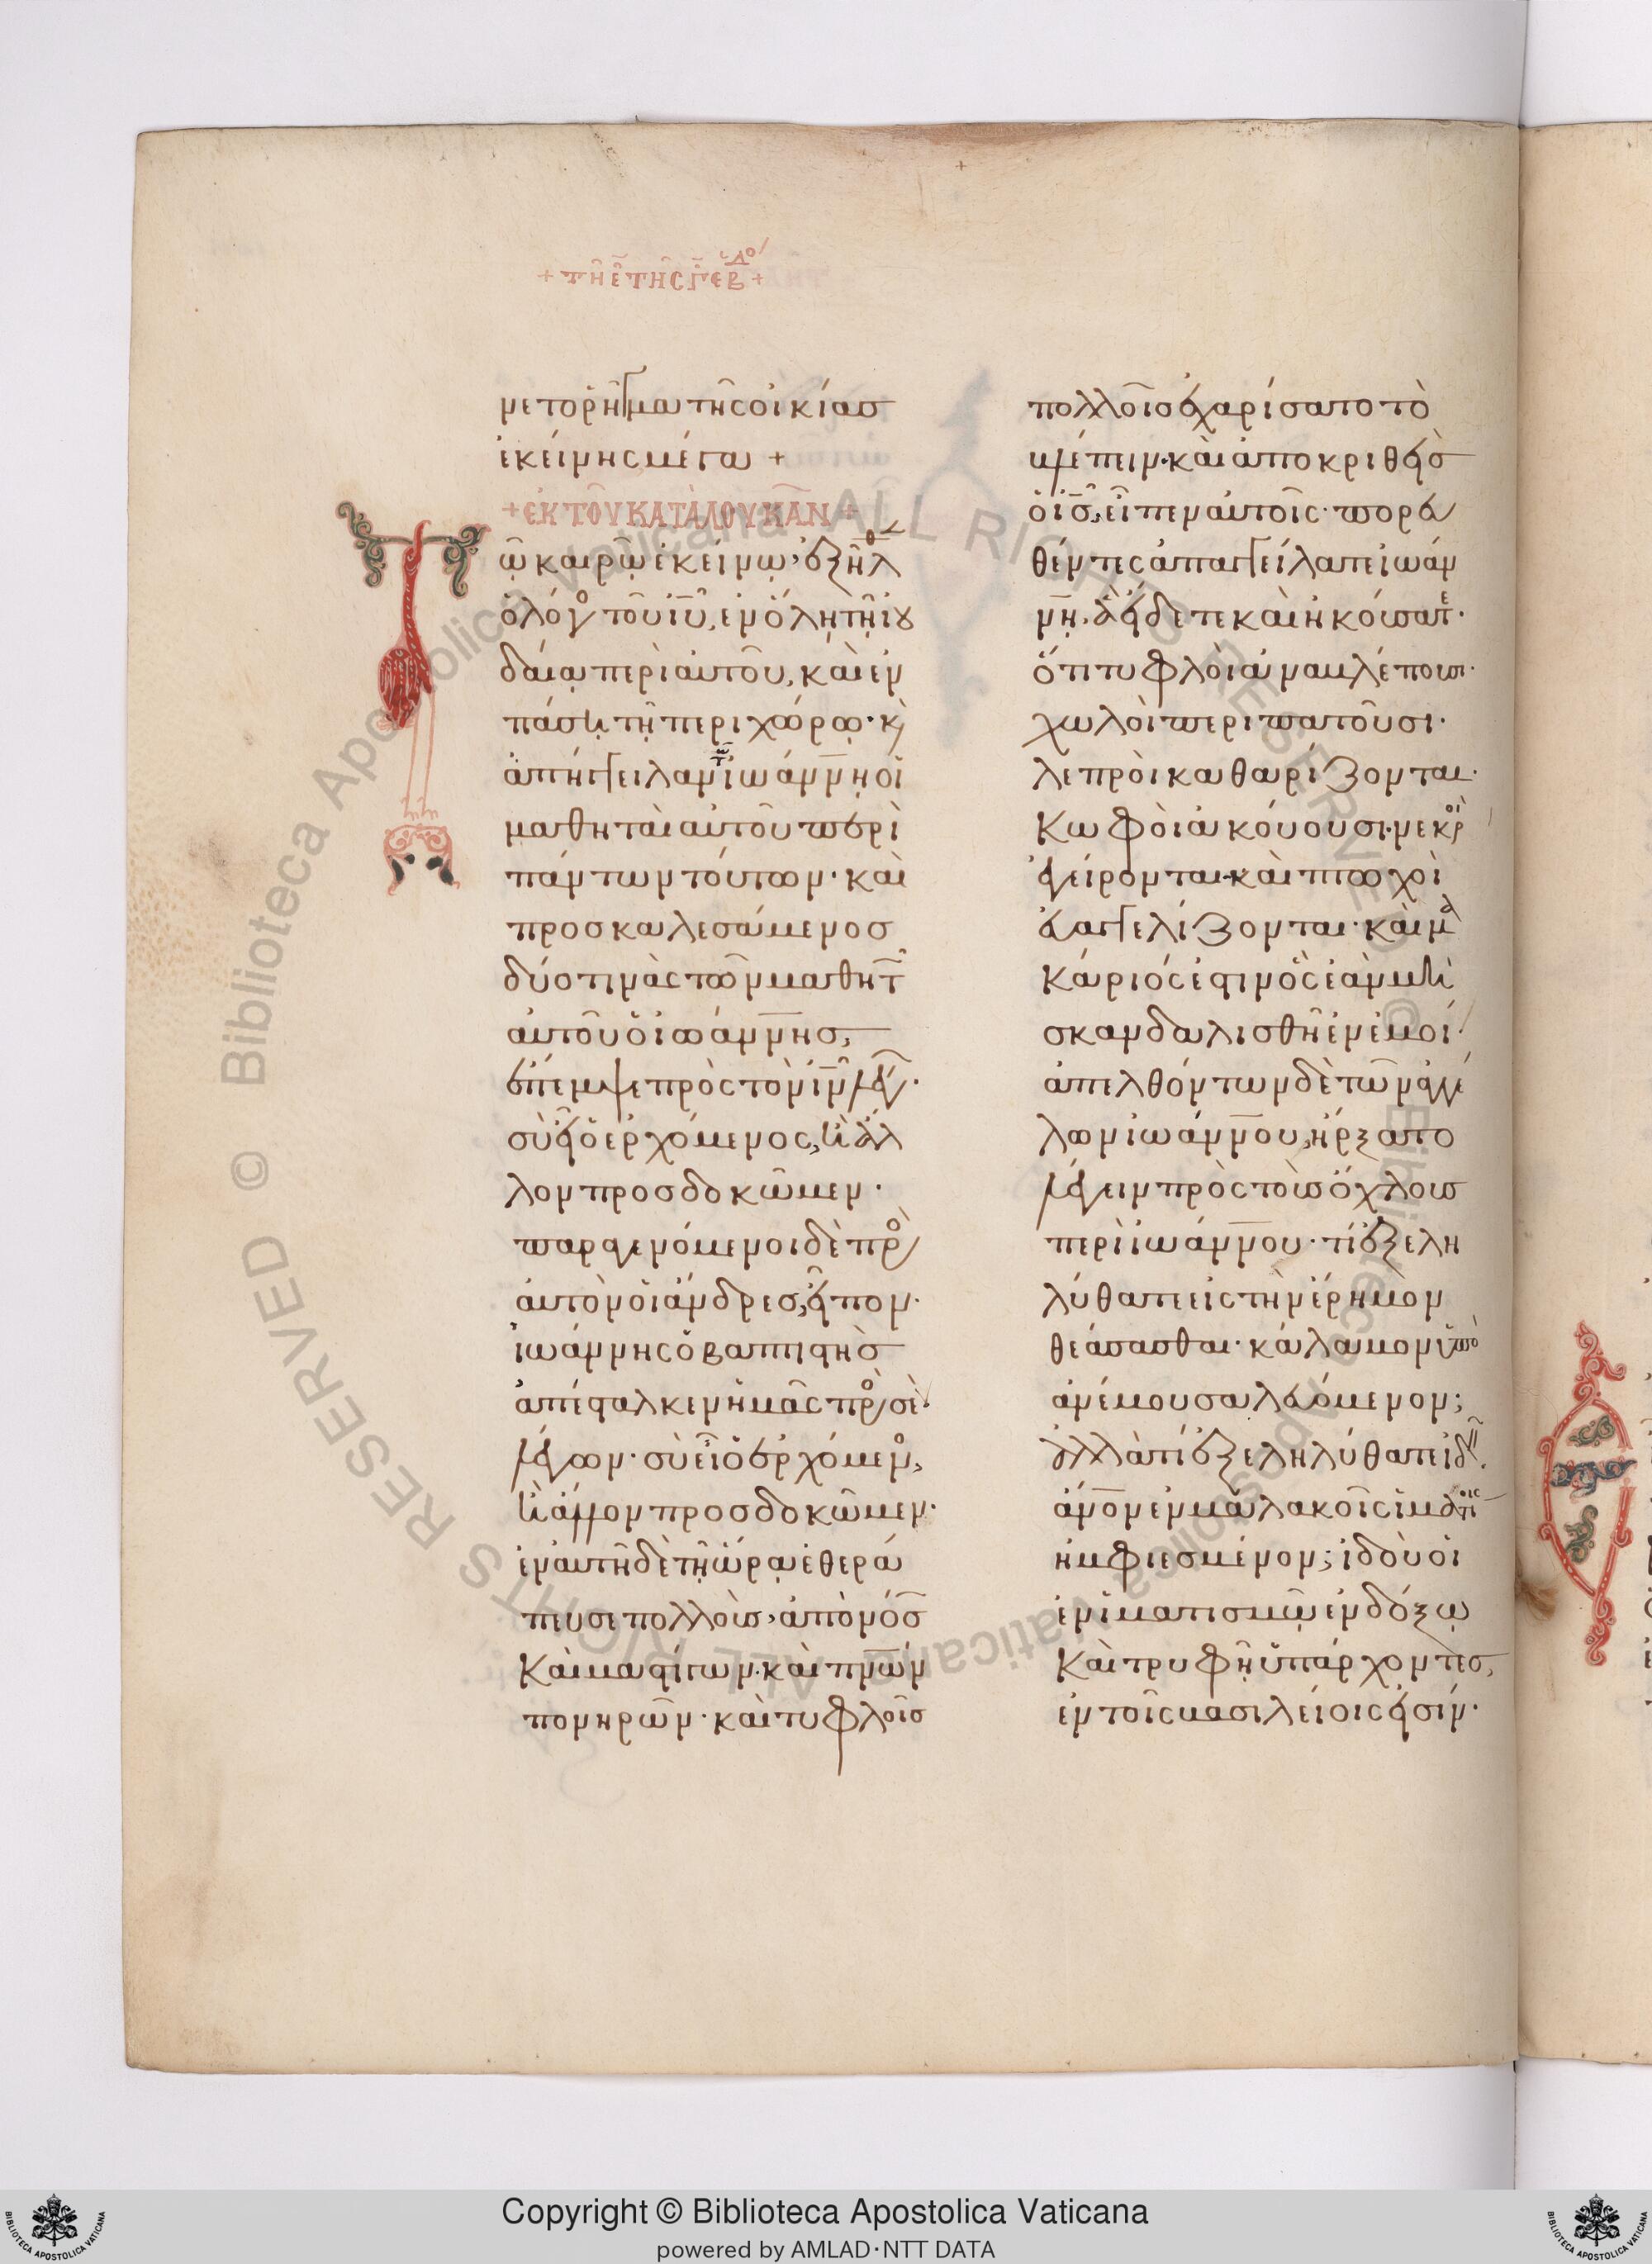 + τῆ ε̅ τῆς γ̅ εβδο +
νετο ρῆγμα τῆς οἰκίασ
ἐκείνης μέγα +
+ ἐκ τοῦ κατὰ λουκᾶν +
ῶ καιρῶ ἐκείνω, ἐξῆλ
ὁ λόγος τοῦ ι̅υ̅, ἐν ὅλη τῆ ἰου
δαία περὶ αὐτοῦ, καὶ ἐν
πάση τῆ περιχώρω· κ
ἀπήγγειλαν τῶ ἰωάννη οἱ
μαθηταὶ αὐτοῦ περὶ
πάντων τούτων· καὶ
προσκαλεσάμενοσ
δύο τινὰς τῶν μαθητ
αὐτοῦ ὁ ἰωάννησ,
ἔπεμψε πρὸς τὸν ι̅ν̅ λέγων·
σὺ εἶ ὁ ἐρχόμενος, ἢ ἄλ
λον προσδοκῶμεν·
παραγενόμενοι δὲ πρὸς
αὐτὸν οἱ ἄνδρεσ, εἶπον·
ἰωάννης ὁ βαπτιστὴσ
ἀπέσταλκεν ἡμᾶς πρὸς σὲ·
λέγων· σὺ εἶ ὁ ἐρχόμενος,
ἢ ἄλλον προσδοκῶμεν·
ἐν αὐτῆ δὲ τῆ ὥρα ἐθερά
πευσε πολλοὺσ, ἀπὸ νόσ
καὶ μαστίγων· καὶ πν̅ων
πονηρῶν· καὶ τυφλοῖσ
πολλοῖσ ἐχαρίσατο τὸ
βλέπειν· καὶ ἀποκριθεὶσ
ὁ ι̅σ̅, εἶπεν αὐτοῖς· πορευ
θέντες ἀπαγγείλατε ἰωάν
νη, ἃ εἴδετε καὶ ἠκούσατε·
ὅτι τυφλοὶ ἀναβλέπουσι·
χωλοὶ περιπατοῦσι·
λεπροὶ καθαρίζονται·
κωφοὶ ἀκούουσι· νεκροὶ
ἐγείρονται· καὶ πτωχοὶ
εὐαγγελίζονται· καὶ μα
κάριός ἐστιν ὃς ἐὰν μὴ
σκανδαλισθῆ ἐν ἐμοί·
ἀπελθόντων δὲ τῶν ἀγγέ
λων ἰωάννου, ἤρξατο
λέγειν πρὸς τοὺσ ὄχλουσ
περὶ ἰωάννου· τί ἐξελη
λύθατε εἰς τὴν ἔρημον
θεάσασθαι· κάλαμον ὑπὸ
ἀνέμου σαλευόμενον;
ἀλλὰ τί ἐξεληλύθατε ἰδεῖν·
α̅ν̅ο̅ν ἐν μαλακοῖς ἱματίοις
ἠμφιεσμένον; ἰδοὺ οἱ
ἐν ἱματισμῶ ἐνδόξω
καὶ τρυφῆ ὑπάρχοντεσ,
ἐν τοῖς βασιλείοις εἰσίν·
Copyright © Biblioteca Apostolica Vaticana
powered by AMLAD·NTT DATA